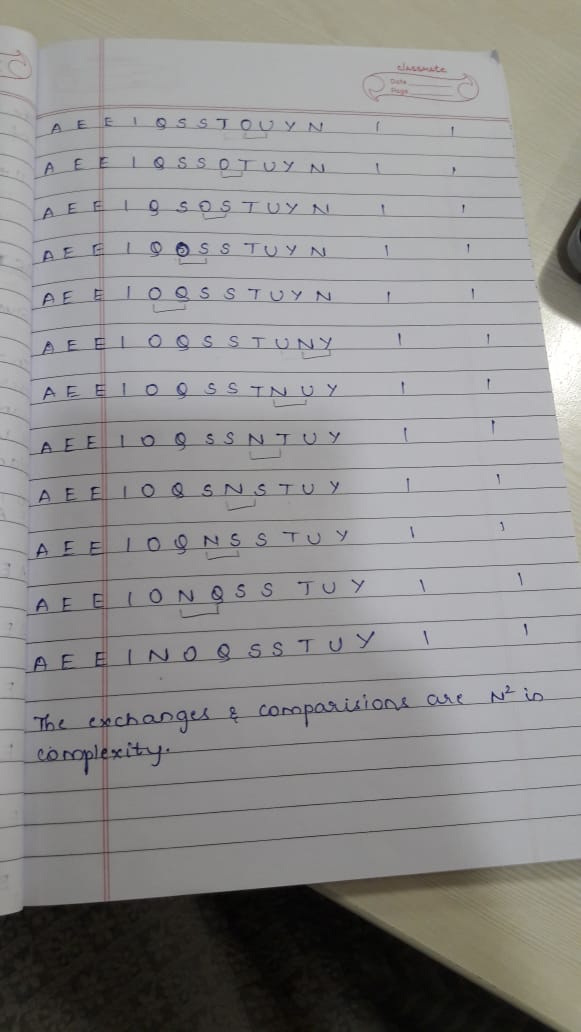 classmate
Date
Page
A E E I Q S S T O U Y N 1 1
A E E I Q S S O T U Y N 1 1
A E E I Q S O S T U Y N 1 1
A E E I Q O S S T U Y N 1 1
A E E I O Q S S T U Y N 1 1
A E E I O Q S S T U N Y 1 1
A E E I O Q S S T N U Y 1 1
A E E I O Q S S N T U Y 1 1
A E E I O Q S N S T U Y 1 1
A E E I O Q N S S T U Y 1 1
A E E I O N Q S S T U Y 1 1
A E E I N O Q S S T U Y 1 1
The exchanges & comparisions are N² in
complexity.